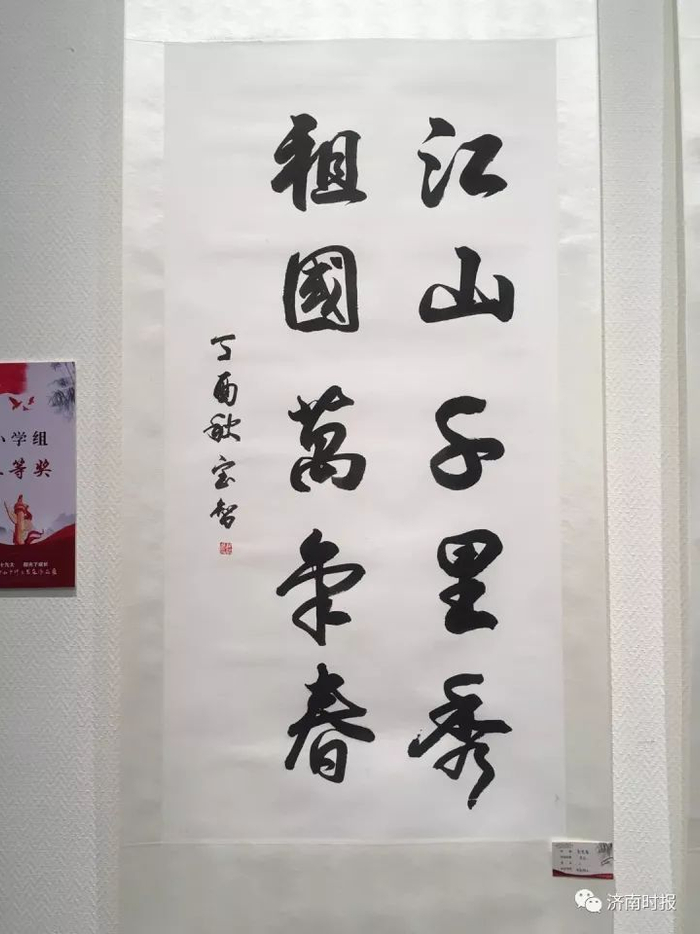 江山千里秀
祖國萬年春
丁酉秋宝智
小学组
等奖
济南时报